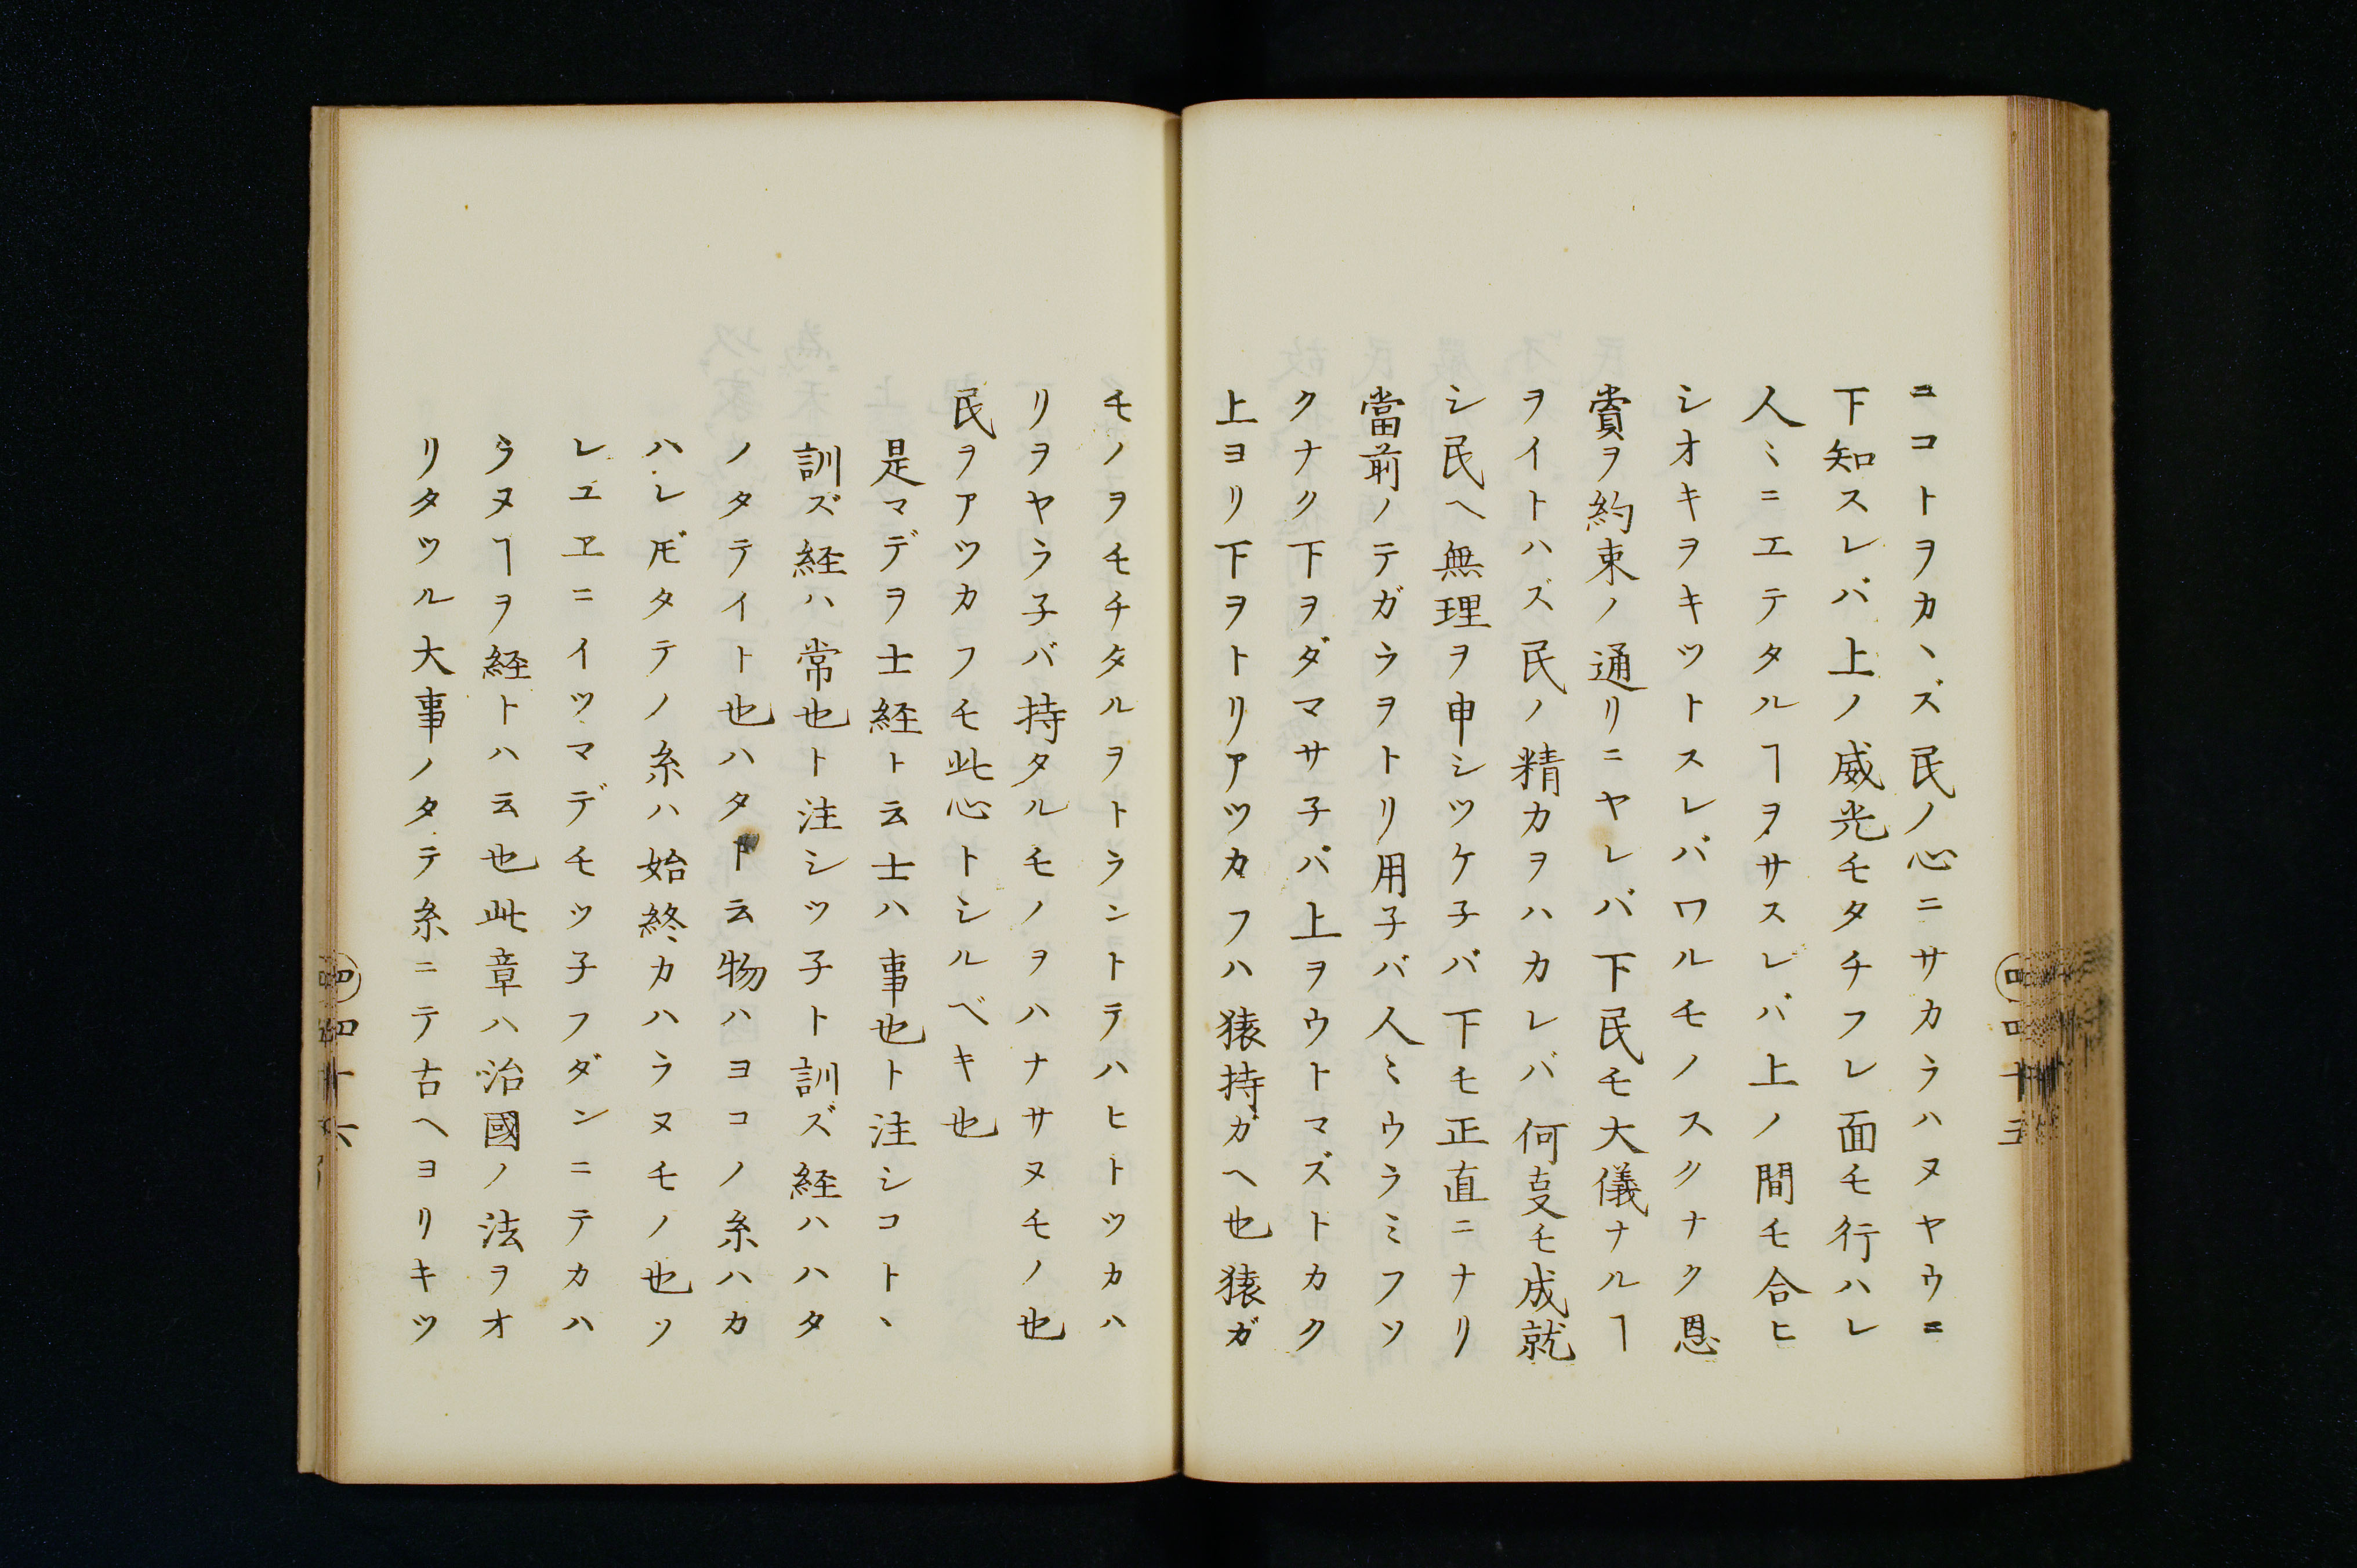 ニコトヲカヽズ民ノ心ニサカラハヌヤウニ
下知スレバ上ノ威光モタチフレ面モ行ハレ
人ミニエテタルヿヲサスレバ上ノ間モ合ヒ
シオキヲキツトスレバワルモノスクナク恩
賞ヲ約束ノ通リニヤレバ下民モ大儀ナルヿ
ヲイトハズ民ノ精力ヲハカレバ何叓モ成就
シ民ヘ無理ヲ申シツケ子バ下モ正直ニナリ
當前ノテガラヲトリ用子バ人ミウラミフツ
クナク下ヲダマサ子バ上ヲウトマズトカク
上ヨリ下ヲトリアツカフハ猿持ガヘ也猿ガ
モノヲモチタルヲトラントテハヒトツカハ
リヲヤラ子バ持タルモノヲハナサヌモノ也
民ヲアツカフモ此心トシルベキ也
是マデヲ士経ト云士ハ事也ト注シコトヽ
訓ズ経ハ常也ト注シツ子ト訓ズ経ハハタ
ノタテイト也ハタト云物ハヨコノ糸ハカ
ハレ𪜈タテノ糸ハ始終カハラヌモノ也ソ
レユヱニイツマデモツ子フダンニテカハ
ラヌヿヲ経トハ云也此章ハ治國ノ法ヲオ
リタツル大事ノタテ糸ニテ古ヘヨリキツ
四十五
四十六